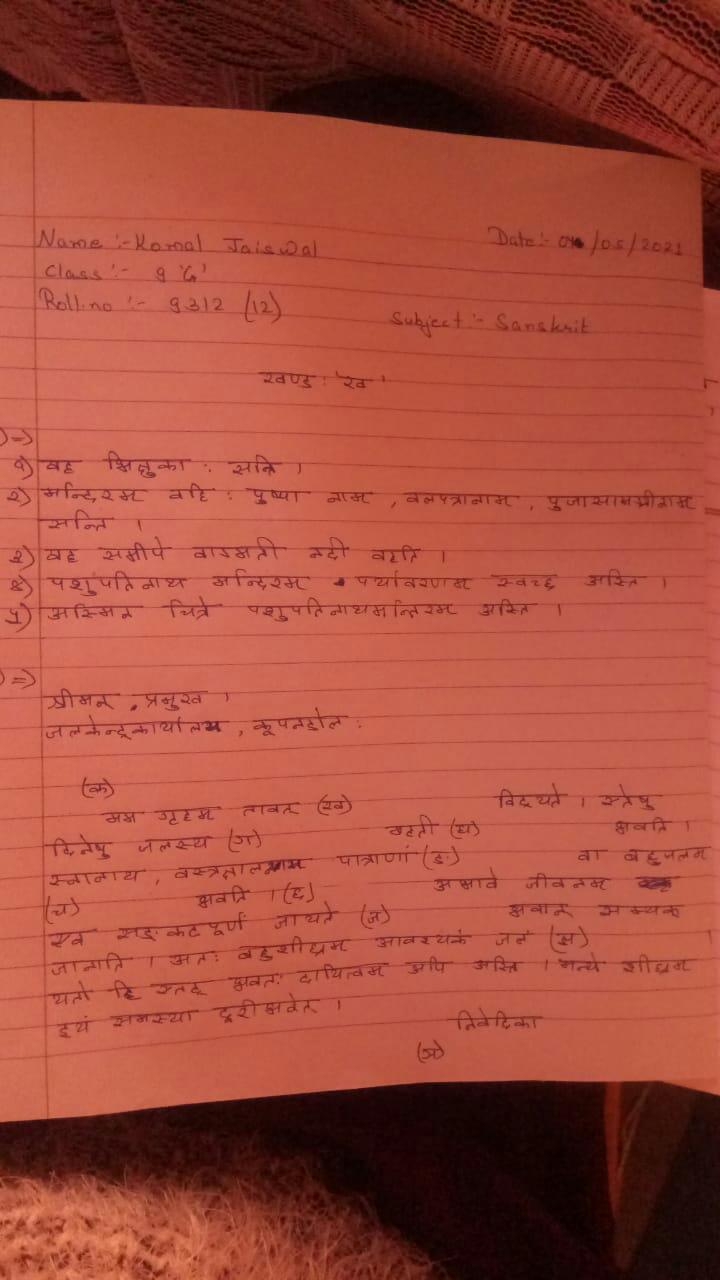 Name :- Komal Jaiswal
Date :- /05/2021
Class :- 9 'G'
Roll.no :- 9312 (12)
Subject :- Sanskrit
खण्ड : 'ख'
१) वह भिक्षुका : सन्ति ।
२) मन्दिरम वहि : पुष्पा नाम , वेलपत्रानाम , पुजासामग्रीनाम
सन्ति ।
३) वह समीपे वाडमती नदी वहति ।
४) पशुपतिनाथ मन्दिरम पर्यावरणम स्वच्छ अस्ति ।
५) अस्मिन चित्रे पशुपतिनाथमन्दिरम अस्ति ।
श्रीमन् , प्रमुख ।
जलकेन्द्रकार्यालय , कूपनहोल :
(क)
मम गृहम तावत् (ख) विद्यते । एतेषु
दिनेषु जलस्य (ग) महती (घ) भवति ।
स्नानाय , पात्राणां (ङ) वा बहुजलम
(च) भवति । (छ) अभावे जीवनम
एव सङ्कटपूर्ण जायते (ज) भवान् सम्यक
जानाति । अतः बहुशीघ्रम आवश्यकं जलं (झ) ।
यतो हि एतद् भवतः दायित्वम अपि अस्ति । मन्ये शीघ्रम
इयं समस्या दूरीभवेत् ।
निवेदिका
(ञ)